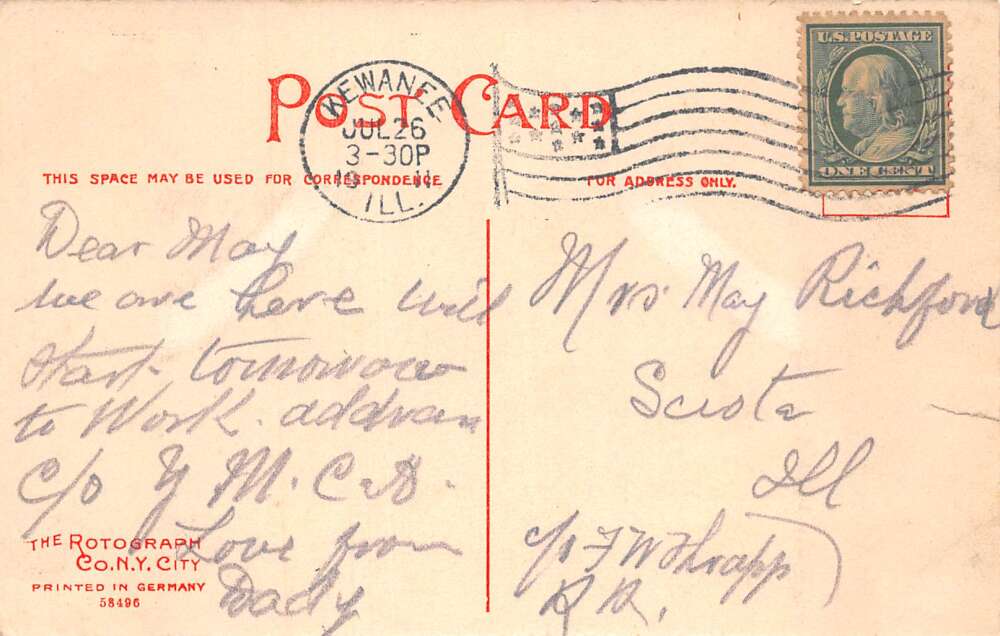 POST CARD
KEWANEE
JUL 26
3-30P
ILL.
U.S. POSTAGE
ONE CENT
THIS SPACE MAY BE USED FOR CORRESPONDENCE
FOR ADDRESS ONLY.
Dear May
we are here will
start tomorrow
to Work. address
c/o Y M. C. A.
Love from
Dady
THE ROTOGRAPH
CO. N.Y. CITY
PRINTED IN GERMANY
58496
Mrs May Richford
Sciota
Ill
c/o F W Thrapp
R R.